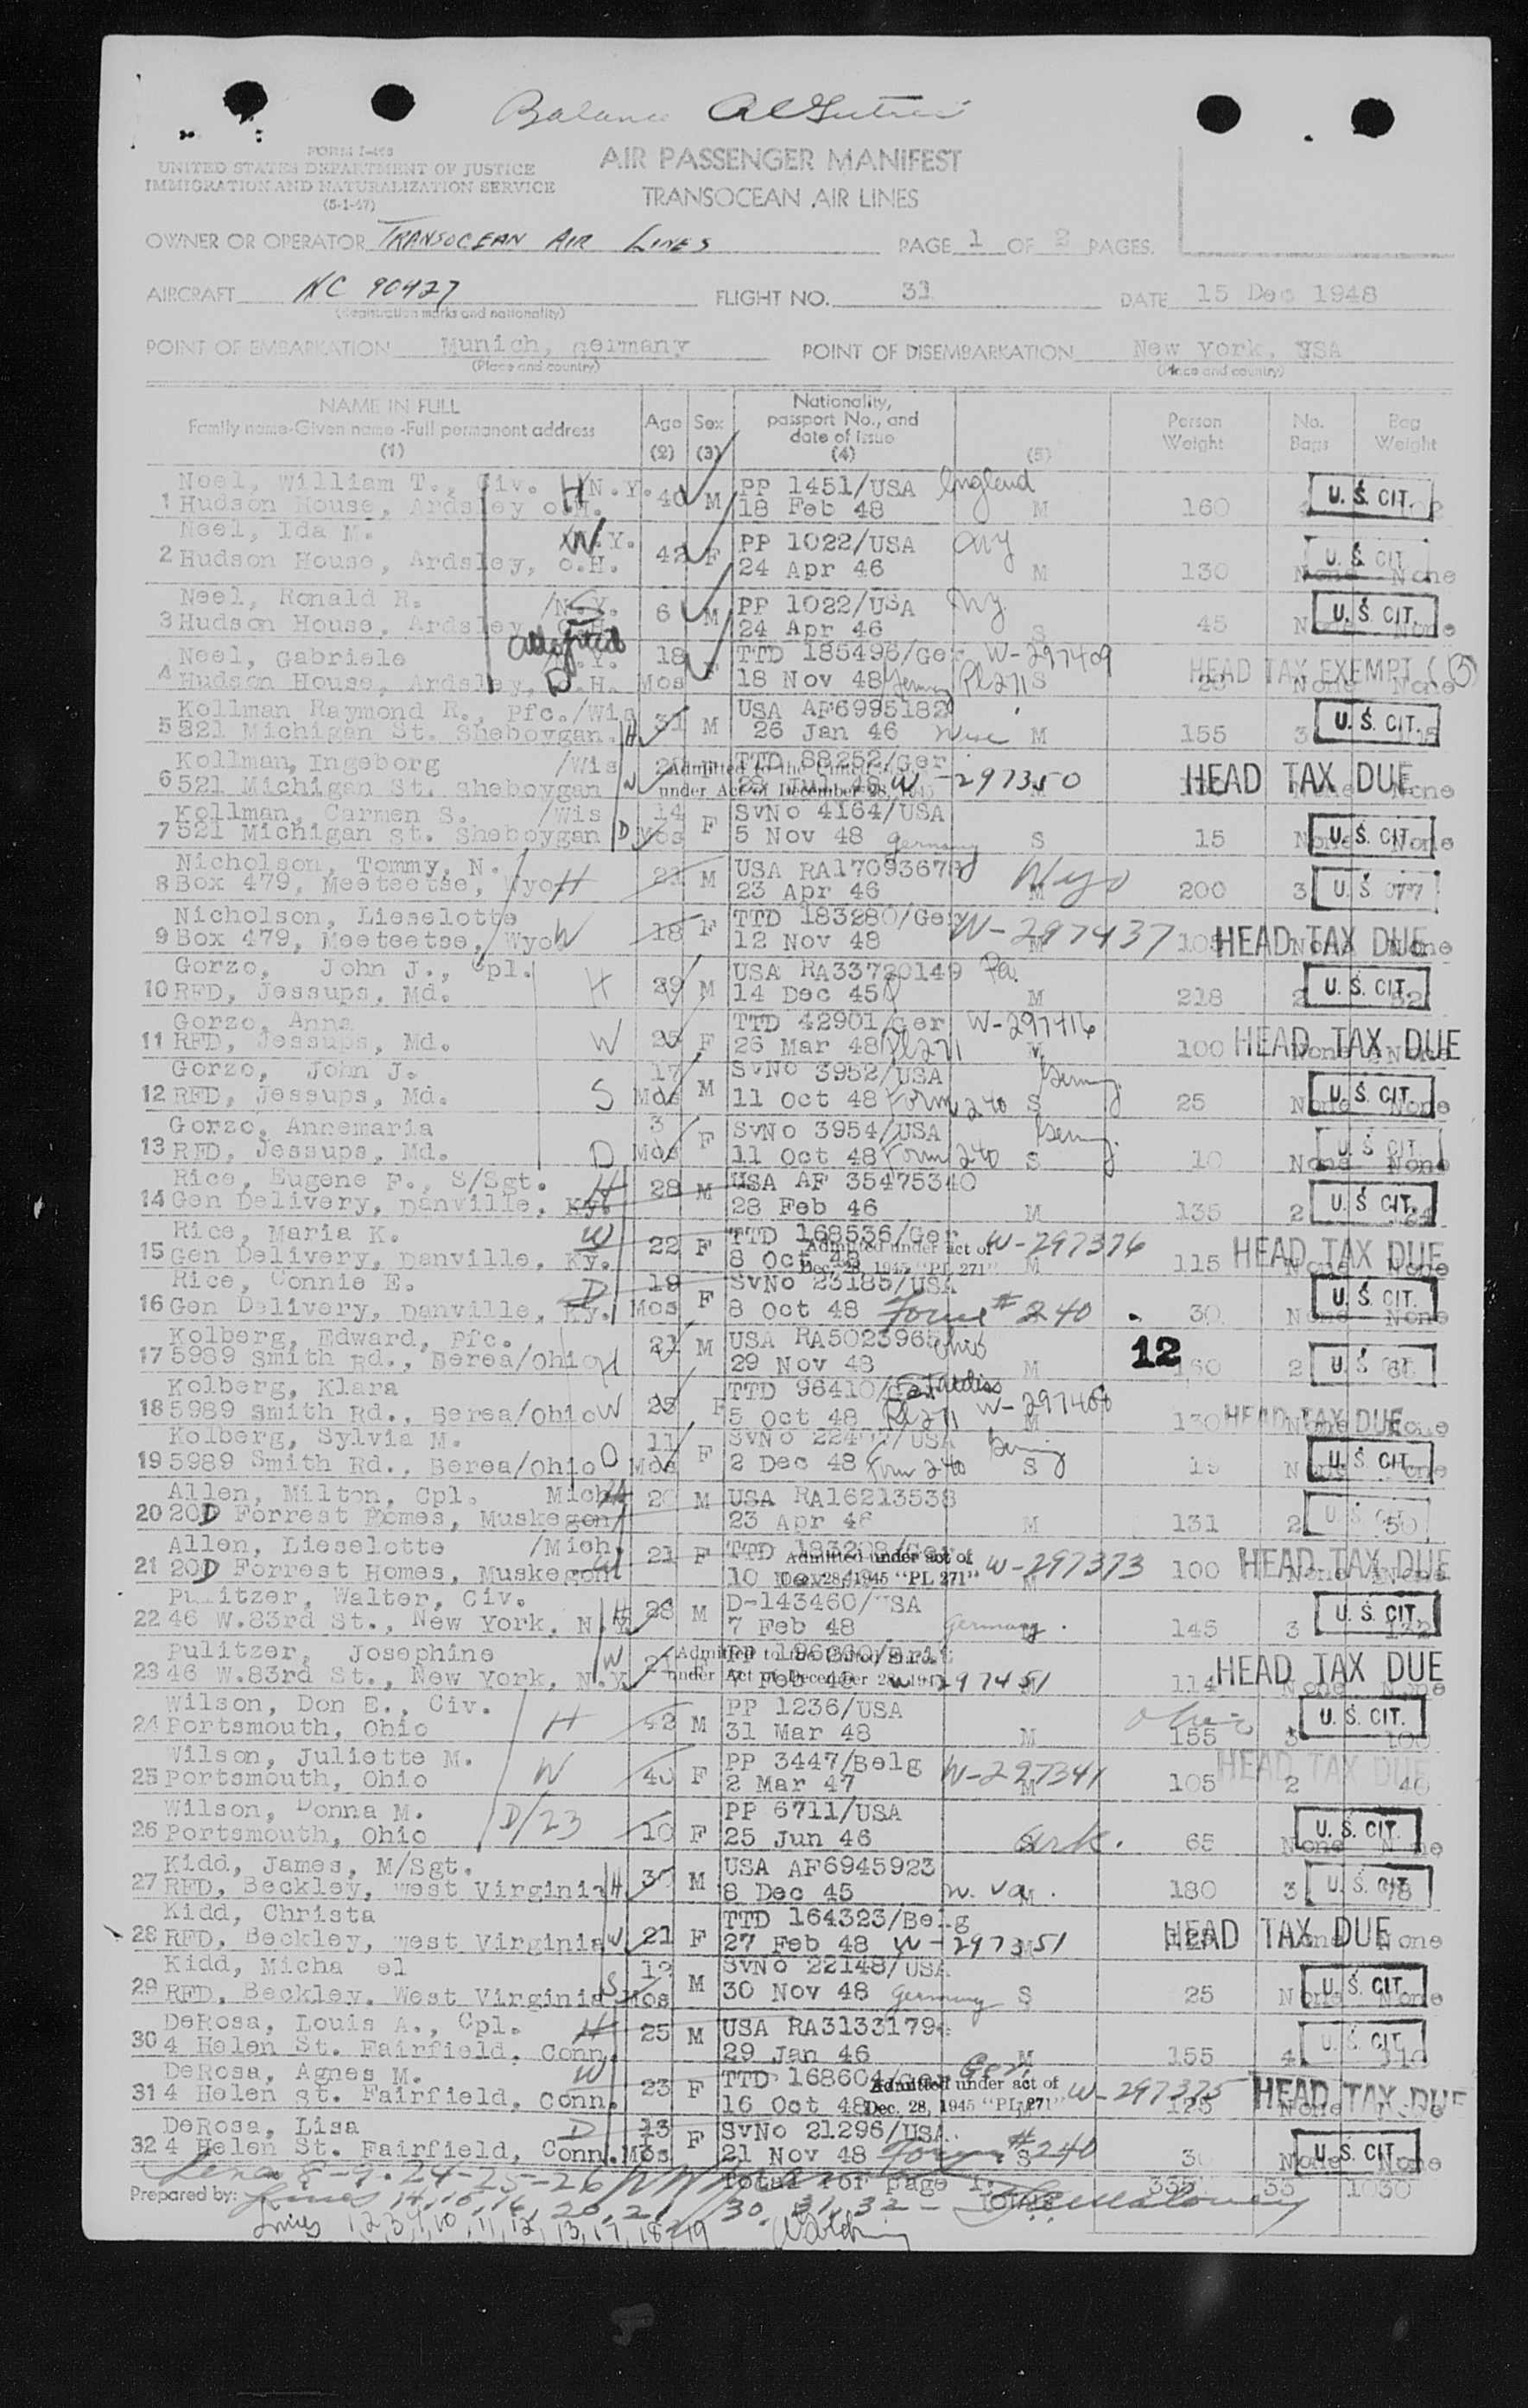 Balance
FORM I-466
UNITED STATES DEPARTMENT OF JUSTICE
IMMIGRATION AND NATURALIZATION SERVICE
(5-1-47)
AIR PASSENGER MANIFEST
TRANSOCEAN AIR LINES
OWNER OR OPERATOR TRANSOCEAN AIR LINES PAGE 1 OF 2 PAGES.
AIRCRAFT NC 90427 FLIGHT NO. 31 DATE 15 Dec 1948
(Registration marks and nationality)
POINT OF EMBARKATION Munich, Germany POINT OF DISEMBARKATION New York, USA
(Place and country) (Place and country)
NAME IN FULL Age Sex Nationality, passport No., and date of issue Person Weight No. Bags Bag Weight
Family name-Given name-Full permanent address
(1) (2) (3) (4) (5)
Neel, William T., Civ. H N.Y. 40 M PP 1451/USA England
1 Hudson House, Ardsley O.H. 18 Feb 48 M 160 U. S. CIT.
Neel, Ida M. W N.Y. 42 F PP 1022/USA
2 Hudson House, Ardsley, O.H. 24 Apr 46 M 130 U. S. CIT. None None
Neel, Ronald R. S /N.Y. 6 M PP 1022/USA NY
3 Hudson House, Ardsley 24 Apr 46 S 45 U. S. CIT.
Neel, Gabriele adopted N.Y. 18 F TTD 185496/Ger W-297409
4 Hudson House, Ardsley, D O.H. Mos 18 Nov 48 Germ Pl 271 S HEAD TAX EXEMPT (B) None None
Kollman Raymond R., Pfc./Wis 31 M USA AF6995182
5 521 Michigan St. Sheboygan. H 26 Jan 46 Wisc M 155 3 U. S. CIT.
Kollman, Ingeborg /Wis F TTD 88252/Ger Admitted to the United States
6 521 Michigan St. Sheboygan W under Act of December 28, 1945 28 Jul 48 W-297350 HEAD TAX DUE None None
Kollman, Carmen S. /Wis 14 F SvNo 4164/USA
7 521 Michigan St. Sheboygan D Mos 5 Nov 48 Germany S 15 U. S. CIT. None None
Nicholson, Tommy, N. 21 M USA RA17093678 Wyo
8 Box 479, Meeteetse, Wyo H 23 Apr 46 M 200 3 U. S. 77
Nicholson, Lieselotte 18 F TTD 183280/Ger W-297437
9 Box 479, Meeteetse, Wyo W 12 Nov 48 M 105 HEAD TAX DUE None
Gorzo, John J., Cpl. H 29 M USA RA33720149 Pa.
10 RFD, Jessups, Md. 14 Dec 45 M 218 2 U. S. CIT. 52
Gorzo, Anna W 25 F TTD 42901/Ger W-297416
11 RFD, Jessups, Md. 26 Mar 48 Pl 271 M 100 HEAD TAX DUE None
Gorzo, John J. S 17 M SvNo 3952/USA Germ.
12 RFD, Jessups, Md. Mos 11 Oct 48 Form 240 S 25 U. S. CIT. None None
Gorzo, Annemaria D 3 F SvNo 3954/USA Germ.
13 RFD, Jessups, Md. Mos 11 Oct 48 Form 240 S 10 U. S. CIT. None None
Rice, Eugene F., S/Sgt. H 28 M USA AF 35475340
14 Gen Delivery, Danville, Ky. 28 Feb 46 M 135 2 U. S. CIT. 24
Rice, Maria K. W 22 F TTD 168536/Ger Admitted under act of W-297376
15 Gen Delivery, Danville, Ky. 8 Oct 48 Dec. 28, 1945 "PL 271" M 115 HEAD TAX DUE None None
Rice, Connie E. D 19 F SvNo 23185/USA
16 Gen Delivery, Danville, Ky. Mos 8 Oct 48 Form #240 30 U. S. CIT. None None
Kolberg, Edward, Pfc. 21 M USA RA5023965 Ohio 12
17 5989 Smith Rd., Berea/Ohio H 29 Nov 48 M 160 2 U. S. CIT.
Kolberg, Klara 25 F TTD 96410/ Stateless W-297408
18 5989 Smith Rd., Berea/Ohio W 5 Oct 48 Pl 271 M 130 HEAD TAX DUE None
Kolberg, Sylvia M. 11 F SvNo /USA Germ
19 5989 Smith Rd., Berea/Ohio D Mos 2 Dec 48 Form 240 S 15 U. S. CIT. None
Allen, Milton, Cpl. Mich H 20 M USA RA16213538
20 20D Forrest Homes, Muskegon 23 Apr 46 M 131 2 U. S. CIT. 50
Allen, Lieselotte /Mich. 21 F TTD 183208/Ger Admitted under act of W-297373
21 20D Forrest Homes, Muskegon W 10 Nov Dec. 28, 1945 "PL 271" M 100 HEAD TAX DUE None None
Pulitzer, Walter, Civ. H 28 M D-143460/USA
22 46 W.83rd St., New York, N.Y. 7 Feb 48 Germany. 145 3 U. S. CIT. 132
Pulitzer, Josephine W F Admitted to the United States
23 46 W.83rd St., New York, N.Y. under Act of December 28, 194 7 Feb 48 W 297451 M 114 HEAD TAX DUE None None
Wilson, Don E., Civ. H 42 M PP 1236/USA Ohio
24 Portsmouth, Ohio 31 Mar 48 M 155 3 U. S. CIT. 100
Wilson, Juliette M. W 40 F PP 3447/Belg W-297341
25 Portsmouth, Ohio 2 Mar 47 M 105 2 HEAD TAX DUE 40
Wilson, Donna M. D/23 10 F PP 6711/USA
26 Portsmouth, Ohio 25 Jun 46 Ark. 65 U. S. CIT. None None
Kidd, James, M/Sgt. M USA AF6945923
27 RFD, Beckley, West Virginia H 8 Dec 45 W. Va. M 180 3 U. S. CIT. 78
Kidd, Christa 21 F TTD 164323/Belg
28 RFD, Beckley, West Virginia W 27 Feb 48 W-297351 M HEAD TAX DUE None
Kidd, Micha el 12 M SvNo 22148/USA
29 RFD, Beckley, West Virginia S Mos 30 Nov 48 Germany S 25 U. S. CIT. None None
DeRosa, Louis A., Cpl. H 25 M USA RA3133179
30 4 Helen St. Fairfield, Conn. 29 Jan 46 M 155 4 U. S. CIT.
DeRosa, Agnes M. W 23 F TTD 168604/Ger Ger. Admitted under act of W-297375
31 4 Helen St. Fairfield, Conn. 16 Oct 48 Dec. 28, 1945 "PL 271" M 125 HEAD TAX DUE None None
DeRosa, Lisa D 13 F SvNo 21296/USA
32 4 Helen St. Fairfield, Conn. Mos 21 Nov 48 Form #240 S 30 U. S. CIT. None None
Lines 8-9-24-25-26 Total for page 1: 55 1030
Prepared by: Lines 14, 15, 16, 20, 21, 30, 31, 32 - TOTALS
Lines 1,2,3,4,10,11,12,13,17,18 & 19